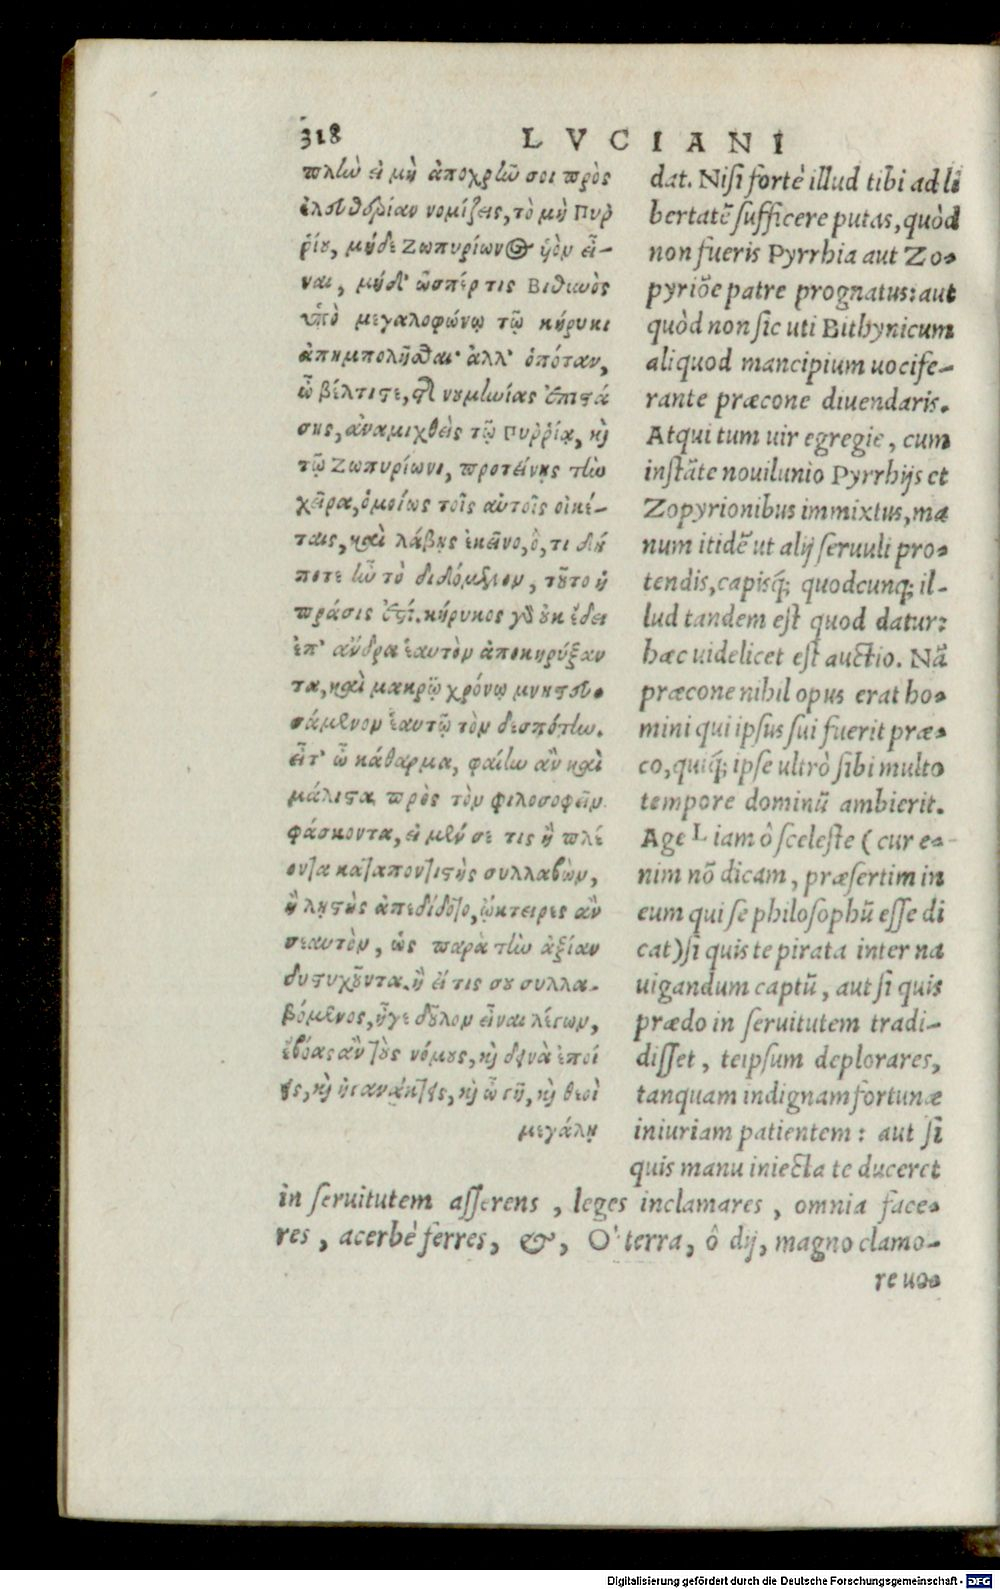 318 LVCIANI
πλὴν εἰ μὴ ἀποχρῆν σοι πρὸς
ἐλευθερίαν νομίζεις, τὸ μὴ Πυῤ
ῥίου, μηδὲ Ζωπυρίωνος υἱὸν εἶ-
ναι, μηδ' ὥσπέρ τις Βιθυνὸς
ὑπὸ μεγαλοφώνῳ τῷ κήρυκι
ἀπημπολῆσθαι· ἀλλ' ὁπόταν,
ὦ βέλτιστε, τῆς νουμηνίας ἐπιστά
σης, ἀναμιχθεὶς τῷ Πυῤῥίᾳ, καὶ
τῷ Ζωπυρίωνι, προτείνῃς τὴν
χεῖρα, ὁμοίως τοῖς αὐτοῖς οἰκέ-
ταις, καὶ λάβῃς ἐκεῖνο, ὅ, τι δή
ποτε ἦν τὸ διδόμενον, τοῦτο ἡ
πρᾶσίς ἐστι. κήρυκος γὰρ οὐκ ἔδει
ἐπ' ἄνδρα ἑαυτὸν ἀποκηρύξαν
τα, καὶ μακρῷ χρόνῳ μνηστευ-
σάμενον ἑαυτῷ τὸν δεσπότην.
εἶτ' ὦ κάθαρμα, φαίην ἂν καὶ
μάλιστα πρὸς τὸν φιλοσοφεῖν
φάσκοντα, εἰ μέν σέ τις ἢ πλέ
οντα καταποντιστὴς συλλαβὼν,
ἢ λῃστὴς ἀπεδίδοτο, ᾤκτειρες ἂν
σεαυτὸν, ὡς παρὰ τὴν ἀξίαν
δυστυχοῦντα. ἢ εἴ τίς σου συλλα-
βόμενος, ἦγε δοῦλον εἶναι λέγων,
ἐβόας ἂν τοὺς νόμους, καὶ δεινὰ ἐποί
εις, καὶ ἠγανάκτεις, καὶ ὦ γῆ, καὶ θεοὶ
μεγάλῃ
dat. Nisi fortè illud tibi ad li
bertatẽ sufficere putas, quòd
non fueris Pyrrhia aut Zo-
pyriõe patre prognatus: aut
quòd non sic uti Bithynicum
aliquod mancipium uocife-
rante præcone diuendaris.
Atqui tum uir egregie, cum
instãte nouilunio Pyrrhijs et
Zopyrionibus immixtus, ma
num itidẽ ut alij seruuli pro-
tendis, capisq́; quodcunq; il-
lud tandem est quod datur:
hæc uidelicet est auctio. Nã
præcone nihil opus erat ho-
mini qui ipsus sui fuerit præ-
co, quiq́; ipse ultrò sibi multo
tempore dominũ ambierit.
Age L iam ô sceleste (cur e-
nim nõ dicam, præsertim in
eum qui se philosophũ esse di
cat) si quis te pirata inter na
uigandum captũ, aut si quis
prædo in seruitutem tradi-
disset, teipsum deplorares,
tanquam indignam fortunæ
iniuriam patientem: aut si
quis manu iniecta te duceret
in seruitutem asserens, leges inclamares, omnia face-
res, acerbè ferres, &, O' terra, ô dij, magno clamo-
re uo-
Digitalisierung gefördert durch die Deutsche Forschungsgemeinschaft - DFG